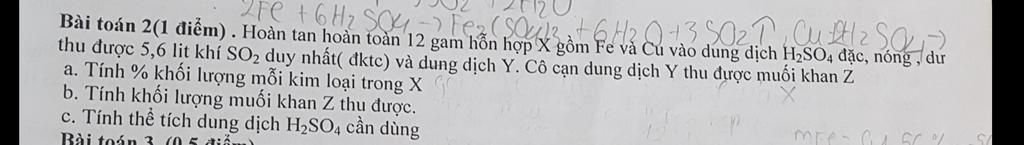 2Fe + 6H2SO4 → Fe2(SO4)3 + 6H2O + 3SO2↑, Cu + 2H2SO4 →
Bài toán 2(1 điểm) . Hoàn tan hoàn toàn 12 gam hỗn hợp X gồm Fe và Cu vào dung dịch H₂SO₄ đặc, nóng , dư
thu được 5,6 lit khí SO₂ duy nhất( đktc) và dung dịch Y. Cô cạn dung dịch Y thu được muối khan Z
a. Tính % khối lượng mỗi kim loại trong X
b. Tính khối lượng muối khan Z thu được.
c. Tính thể tích dung dịch H₂SO₄ cần dùng
Bài toán 3 (0,5 điểm)